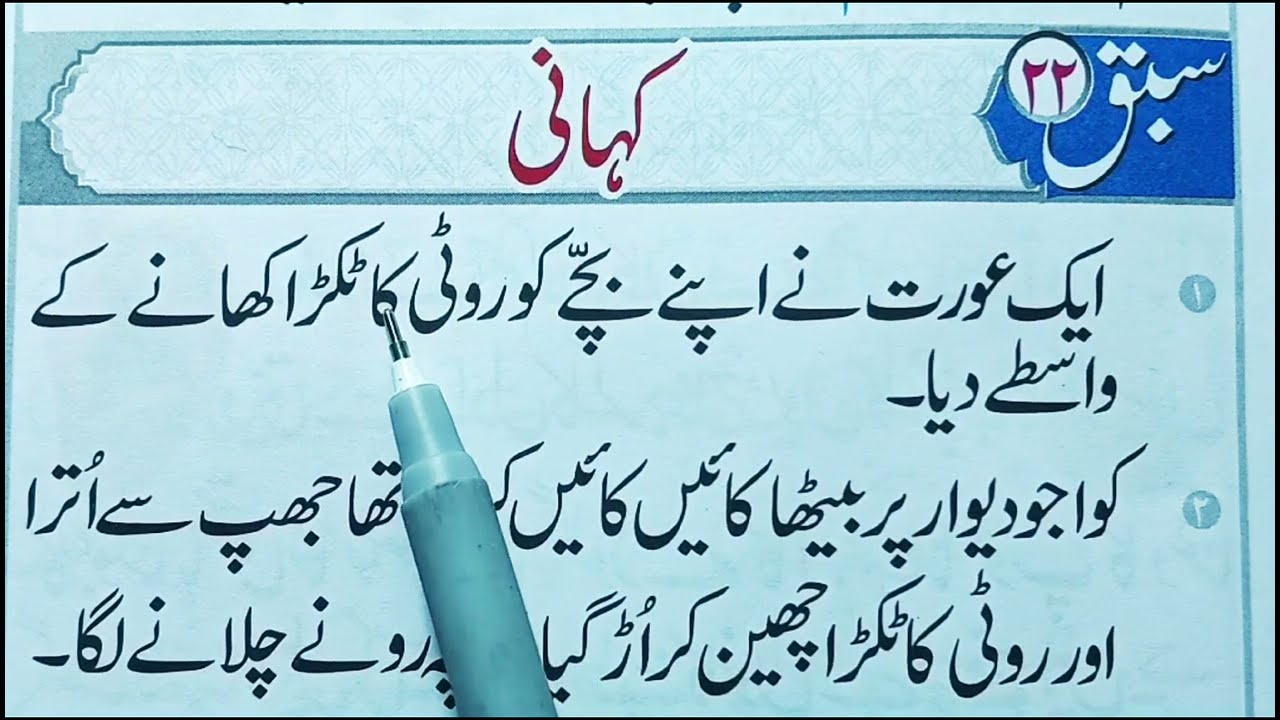 سبق ۲۲
کہانی
۱ ایک عورت نے اپنے بچّے کو روٹی کا ٹکڑا کھانے کے
واسطے دیا۔
۲ کوا جو دیوار پر بیٹھا کائیں کائیں تھا جھپ سے اُترا
اور روٹی کا ٹکڑا چھین کر اُڑ گیا رونے چلانے لگا۔